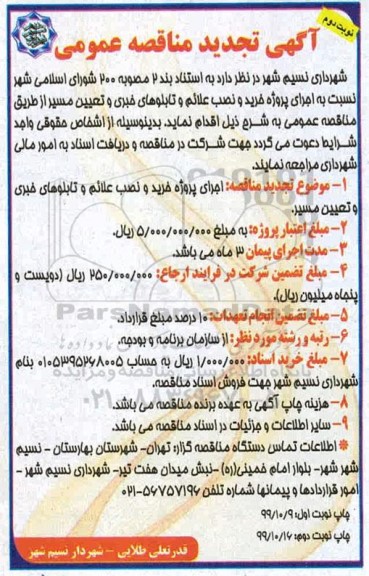 نوبت دوم
آگهی تجدید مناقصه عمومی
شهرداری نسیم شهر در نظر دارد به استناد بند ۲ مصوبه ۲۰۰ شورای اسلامی شهر
نسبت به اجرای پروژه خرید و نصب علائم و تابلوهای خبری و تعیین مسیر از طریق
مناقصه عمومی به شرح ذیل اقدام نماید. بدینوسیله از اشخاص حقوقی واجد
شرایط دعوت می گردد جهت شرکت در مناقصه و دریافت اسناد به امور مالی
شهرداری مراجعه نمایند.
۱- موضوع تجدید مناقصه: اجرای پروژه خرید و نصب علائم و تابلوهای خبری
و تعیین مسیر.
۲- مبلغ اعتبار پروژه: به مبلغ ۵/۰۰۰/۰۰۰/۰۰۰ ریال.
۳- مدت اجرای پیمان ۳ ماه می باشد.
۴- مبلغ تضمین شرکت در فرایند ارجاع: ۲۵۰/۰۰۰/۰۰۰ ریال (دویست و
پنجاه میلیون ریال).
۵- مبلغ تضمین انجام تعهدات: ۱۰ درصد مبلغ قرارداد.
۶- رتبه و رشته مورد نظر: از سازمان برنامه و بودجه.
۷- مبلغ خرید اسناد: ۱/۰۰۰/۰۰۰ ریال به حساب ۰۱۰۵۳۹۵۲۶۸۰۰۵ بنام
شهرداری نسیم شهر جهت فروش اسناد مناقصه.
۸- هزینه چاپ آگهی به عهده برنده مناقصه می باشد.
۹- سایر اطلاعات و جزئیات در اسناد مناقصه می باشد.
* اطلاعات تماس دستگاه مناقصه گزار: تهران- شهرستان بهارستان - نسیم
شهر شهر- بلوار امام خمینی(ره) -نبش میدان هفت تیر- شهرداری نسیم شهر -
امور قراردادها و پیمانها شماره تلفن ۵۶۷۵۷۱۹۶-۰۲۱
چاپ نوبت اول: ۹۹/۱۰/۹
چاپ نوبت دوم: ۹۹/۱۰/۱۶
قدرتعلی طلایی - شهردار نسیم شهر